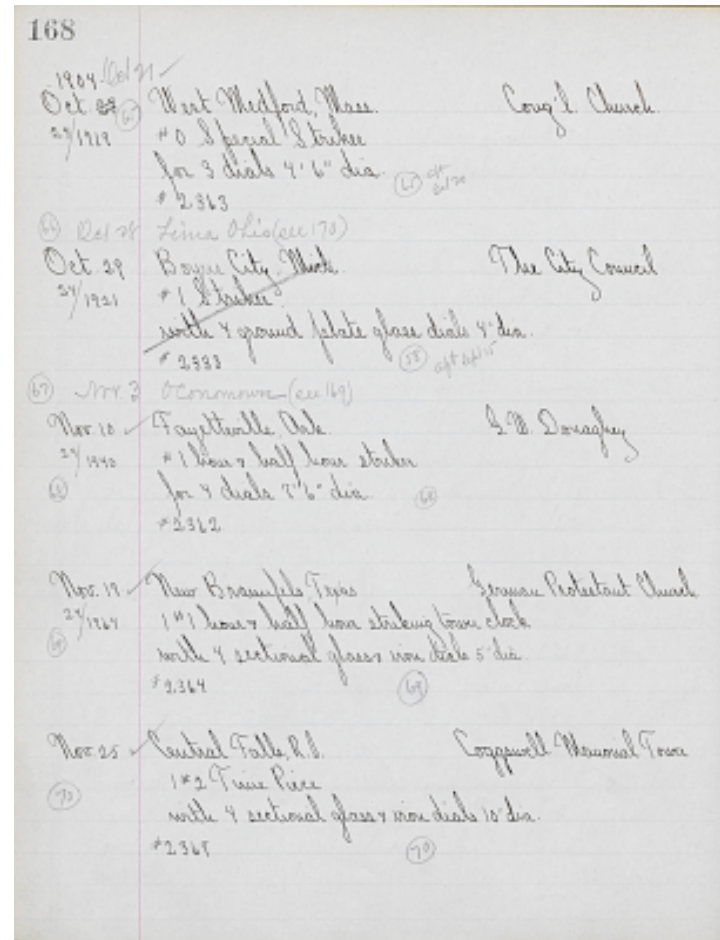 168
1904 Oct 21 ✓
Oct. 28 (65) West Medford, Mass. Cong'l. Church
29/1919 #0 Special Striker
for 3 dials 4'6" dia.
(65) aft Oct 20
#2363
(66) Oct 28 Lima Ohio (see 170)
Oct. 29 Boyne City, Mich. The City Council
24/1921 #1 Striker
with 4 ground plate glass dials 4' dia.
#2333 (58) aft Apl 15
(67) Nov. 3 Oconomowoc (see 169)
Nov. 10 ✓ Fayetteville, Ark. G. W. Donaghey
24/1940 #1 hour & half hour striker
(68) for 4 dials 7'6" dia. (68)
#2362
Nov. 19 ✓ New Braunfels, Texas German Protestant Church
24/1964 1 #1 hour & half hour striking tower clock
(69) with 4 sectional glass & iron dials 5' dia.
#2364 (69)
Nov. 25 ✓ Central Falls, R.I. Coggswell Memorial Tower
(70) 1 #2 Time Piece
with 4 sectional glass & iron dials 10' dia.
#2368 (70)